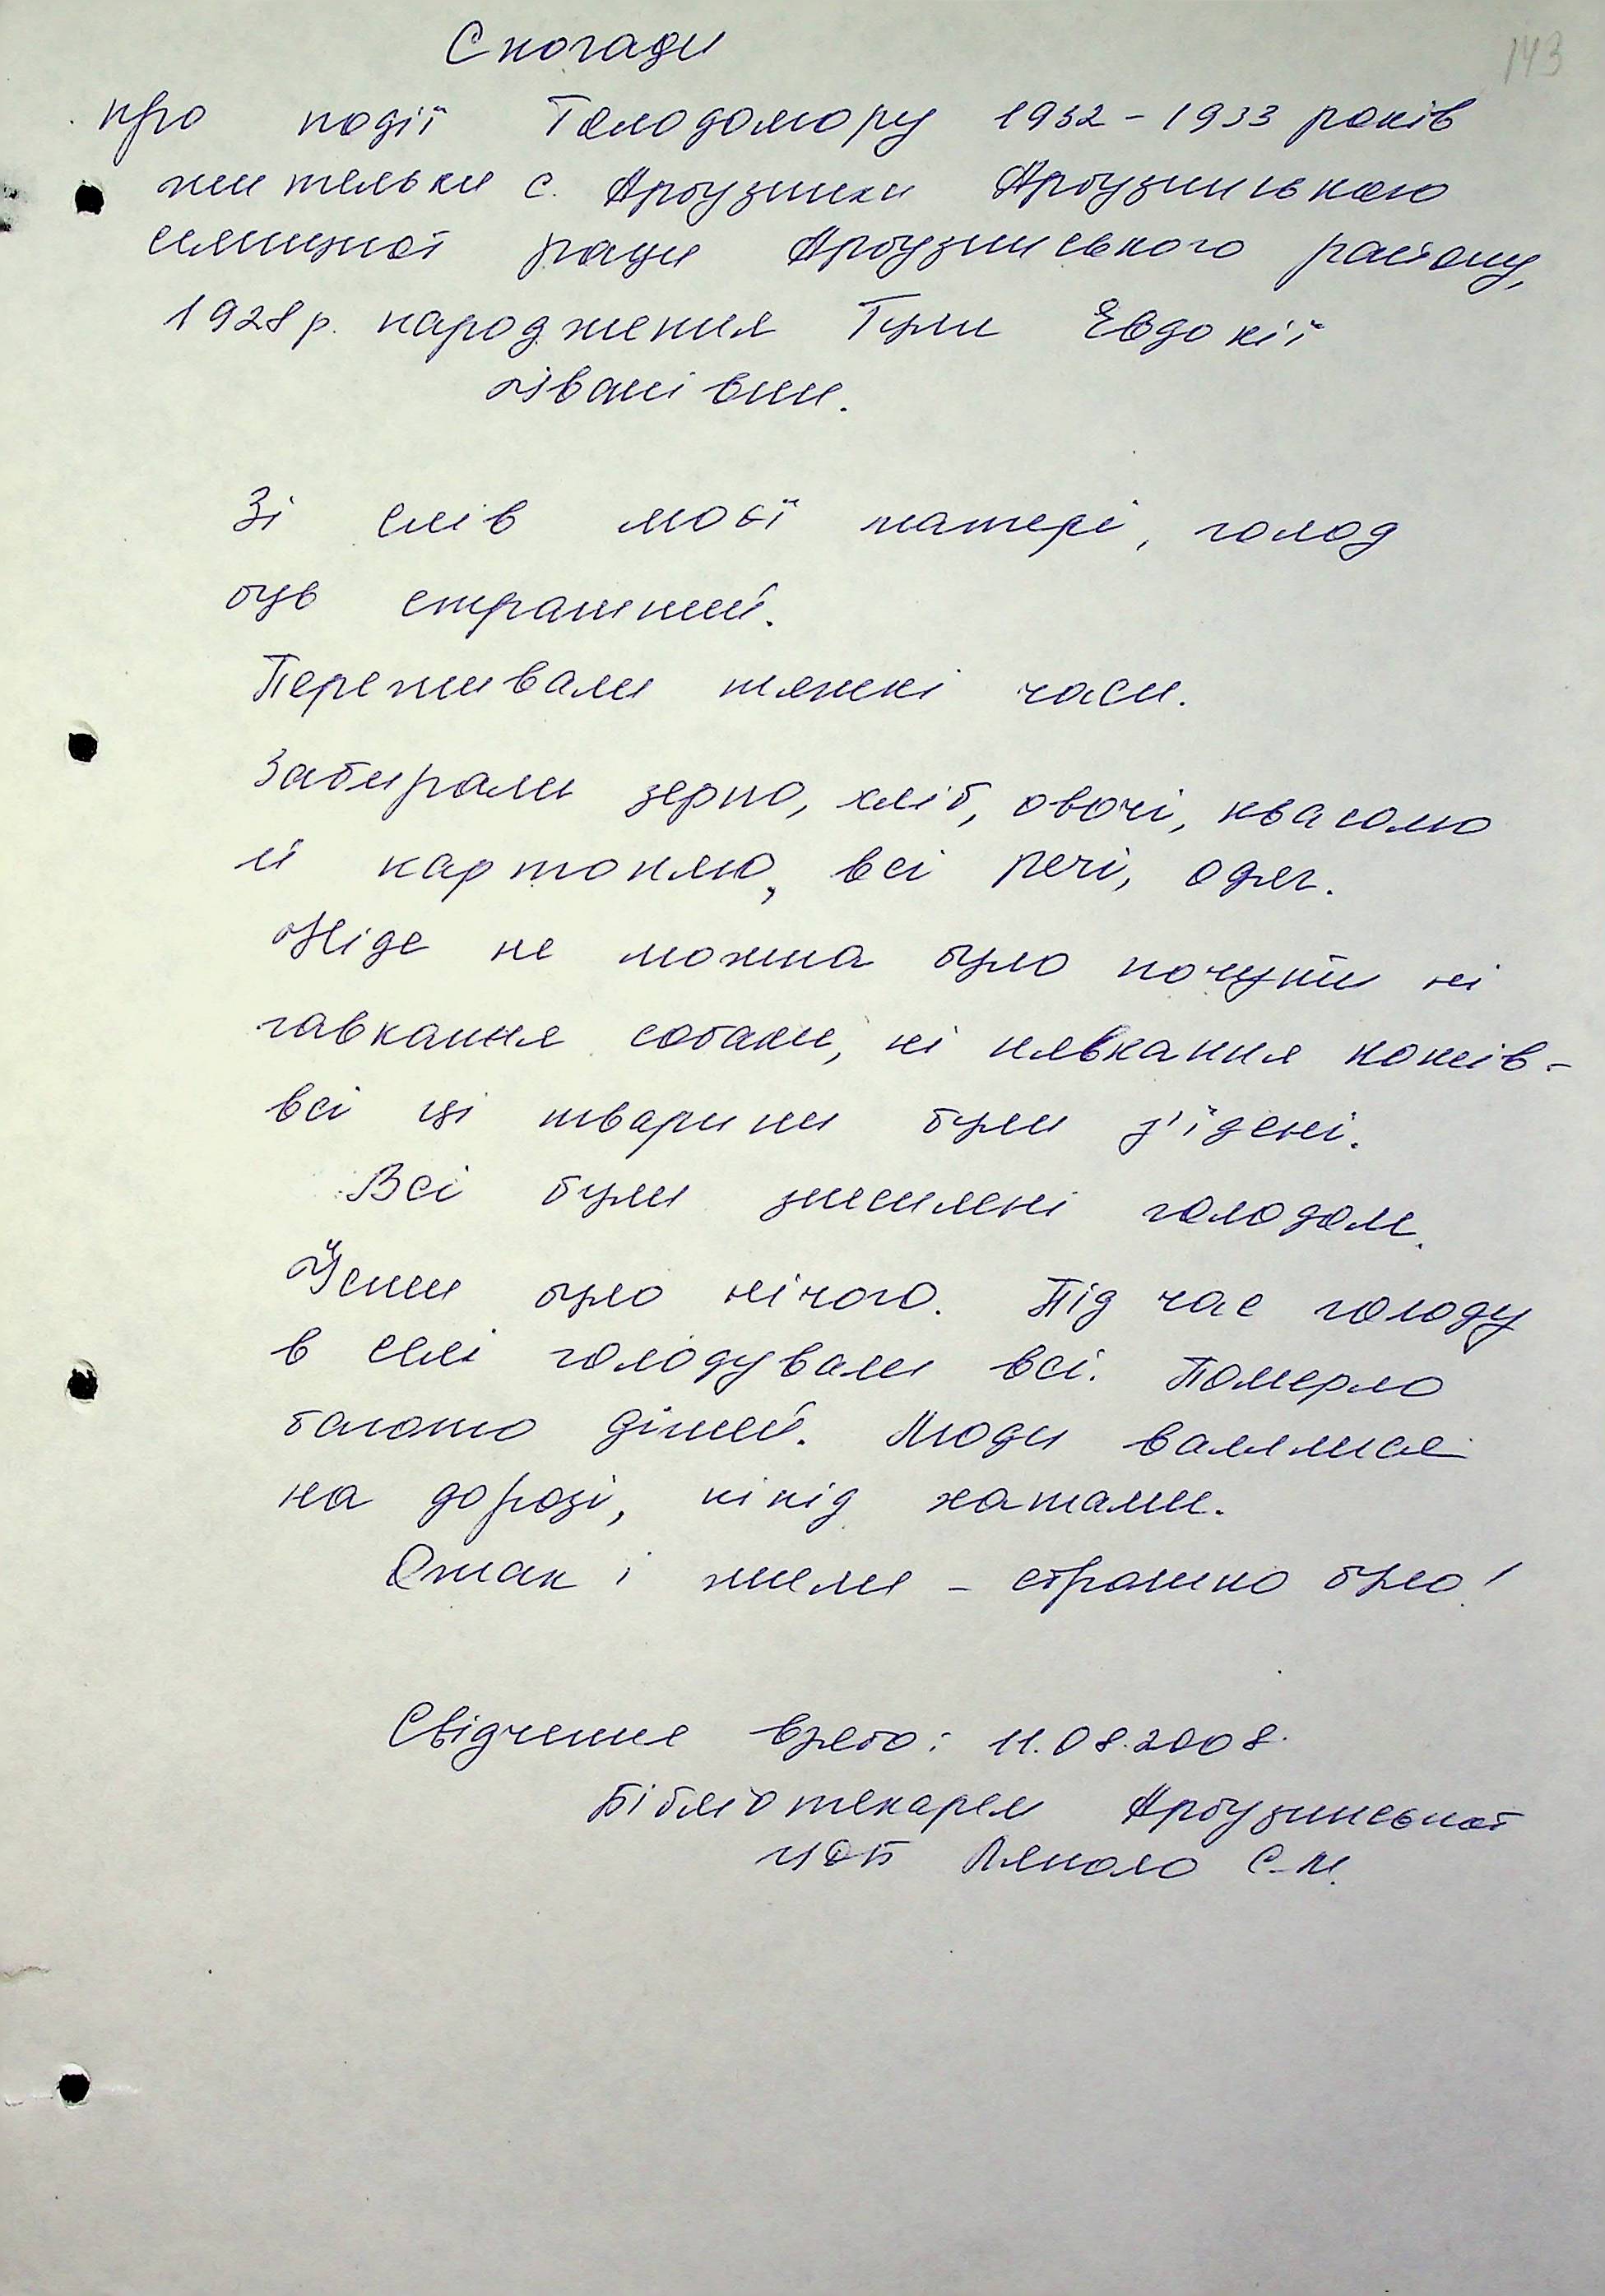 143
Спогади
про події Голодомору 1932-1933 років
жительки с. Арбузинки Арбузинською
селищної ради Арбузинського району,
1928р. народження Гули Євдокії
Іванівни.
Зі слів моєї матері, голод
був страшний.
Переживали тяжкі часи.
Забирали зерно, хліб, овочі, квасолю
й картоплю, всі речі, одяг.
Ніде не можна було почути ні
гавкання собаки, ні нявкання котів -
всі ці тварини були з'їдені.
Всі були знесилені голодом.
Їсти було нічого. Під час голоду
в селі голодували всі. Померло
багато дітей. Люди валялися
на дорозі, під хатами.
Отак і жили - страшно було!
Свідчення взято: 11.08.2008.
Бібліотекарем Арбузинської
С.М.